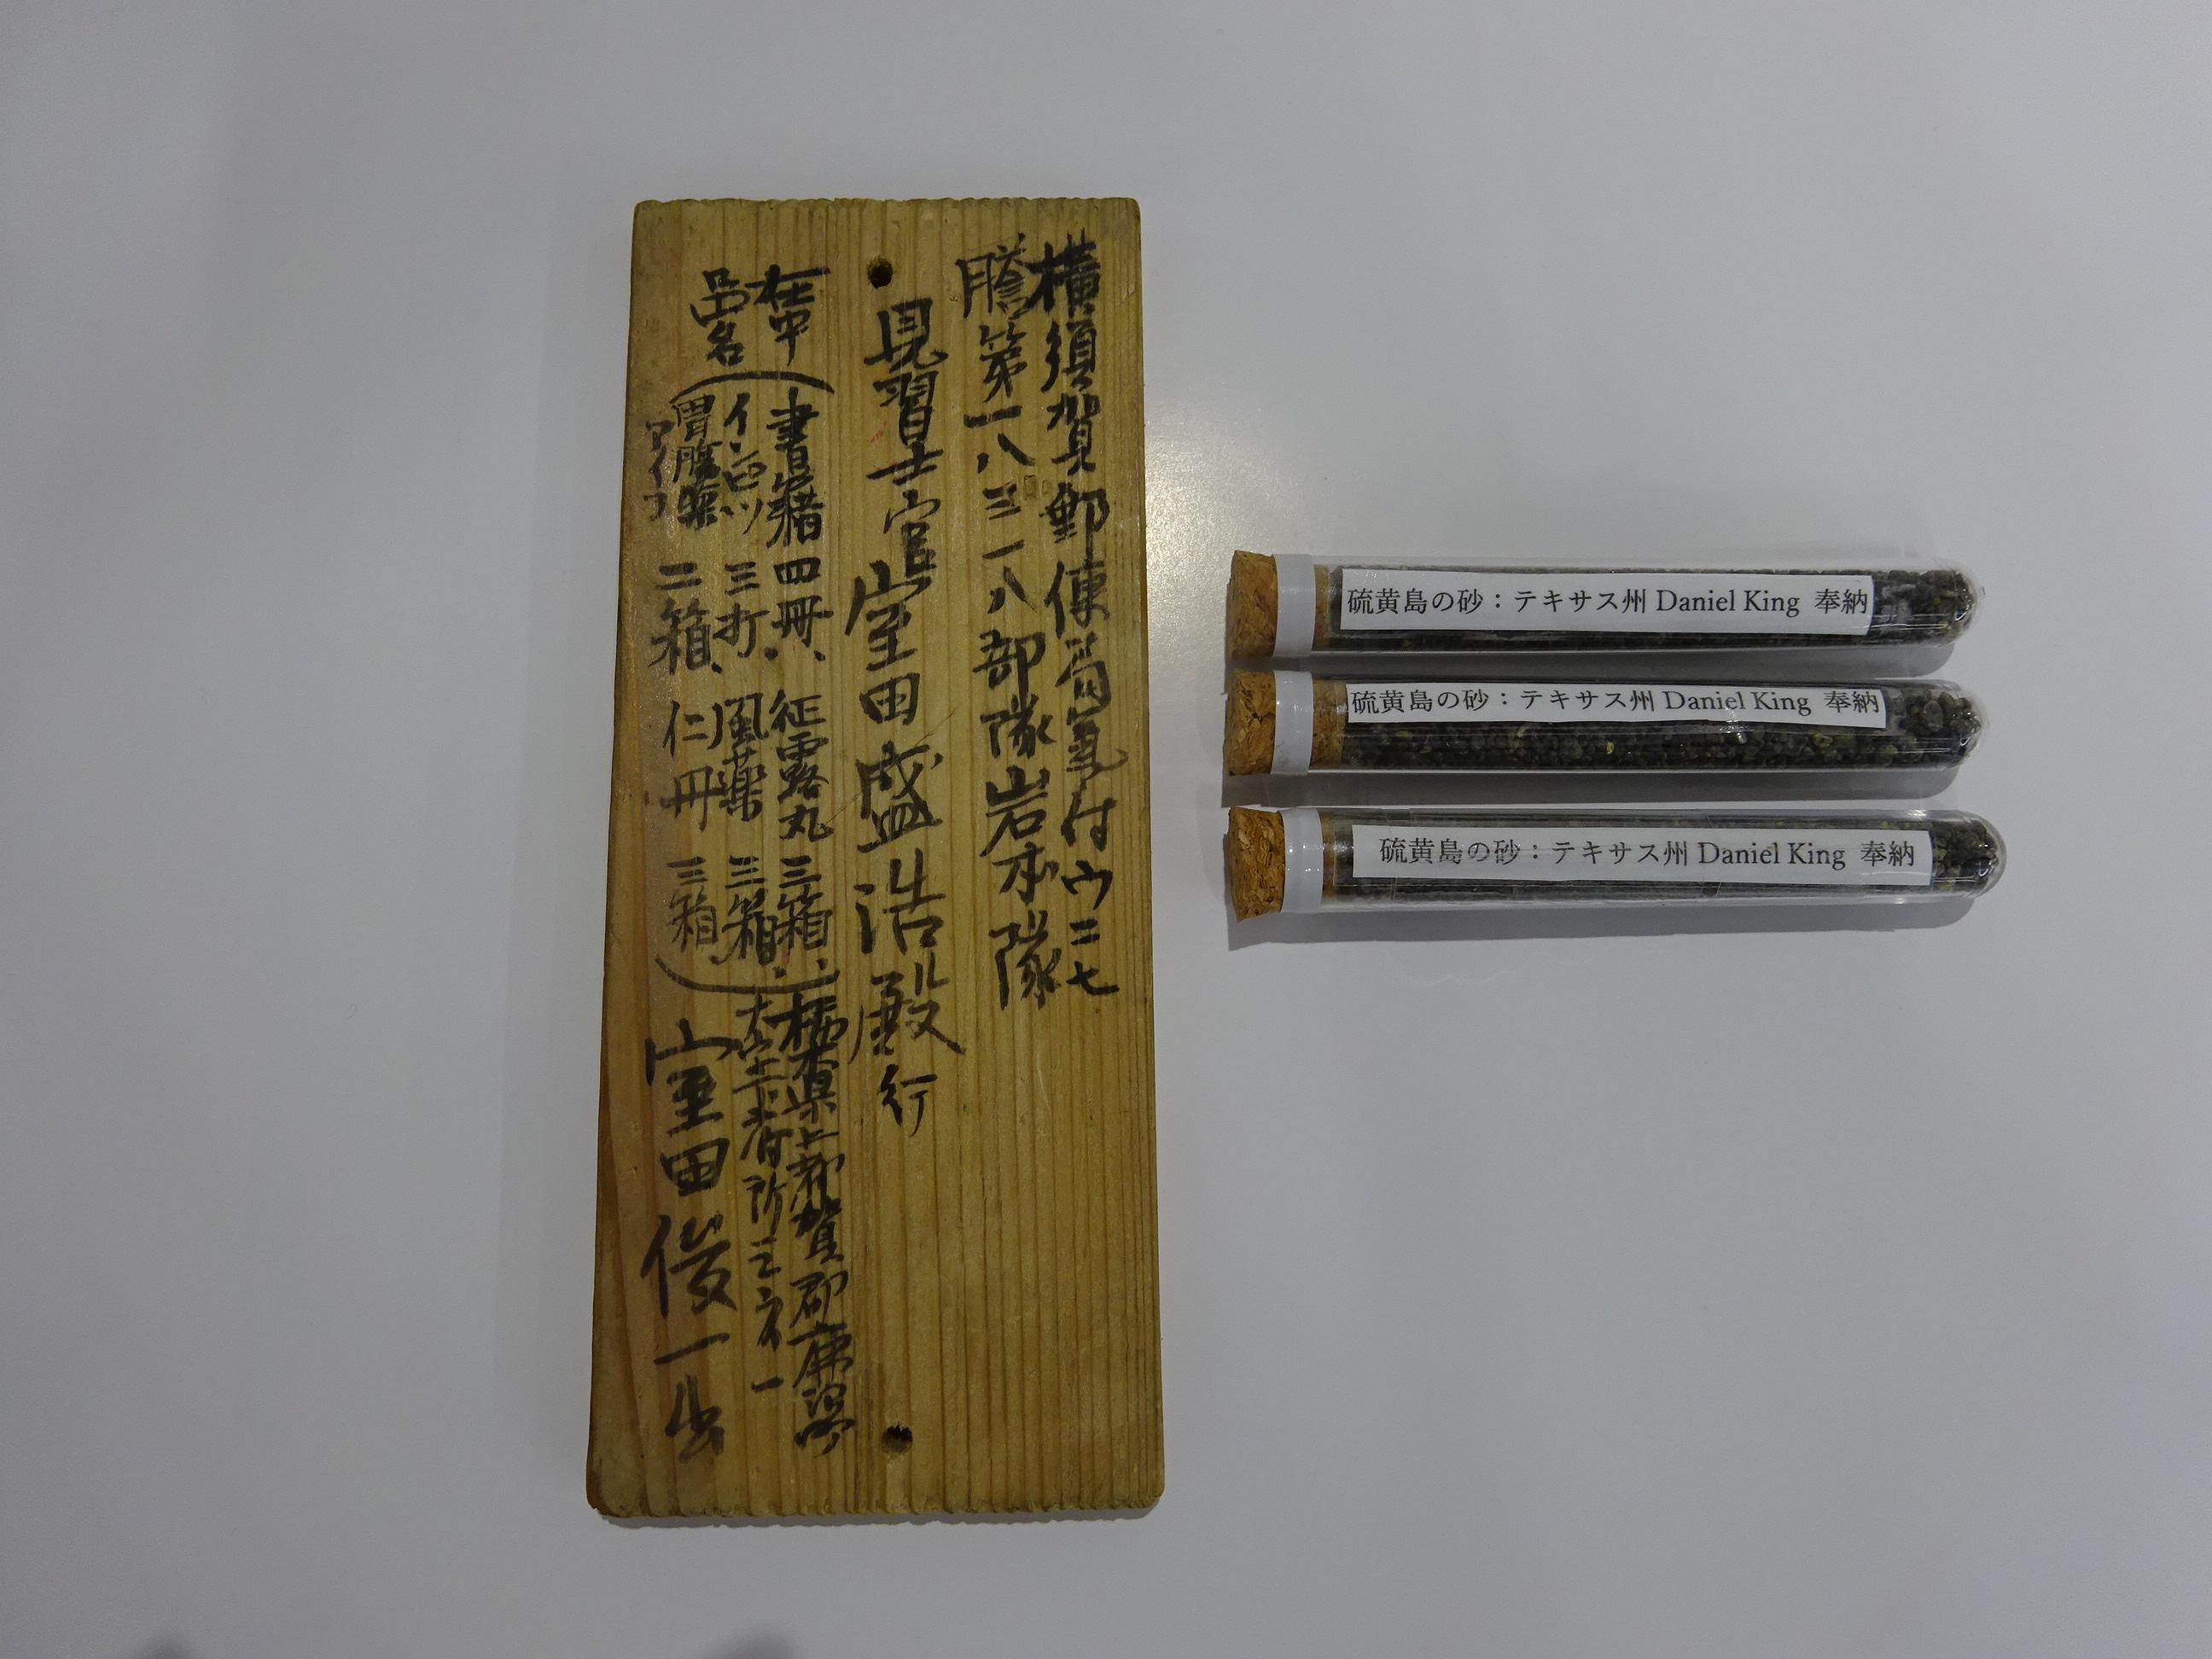 横須賀郵便局気付ウ二七
膽第一八三一八部隊岩本隊
見習士官室田盛浩殿行
在中
品名
書籍四冊、征露丸三箱、
三打、風薬三箱、
胃腸薬二箱、仁丹三箱
栃木県上都賀郡鹿沼町
室田俊一出
硫黄島の砂：テキサス州 Daniel King 奉納
硫黄島の砂：テキサス州 Daniel King 奉納
硫黄島の砂：テキサス州 Daniel King 奉納